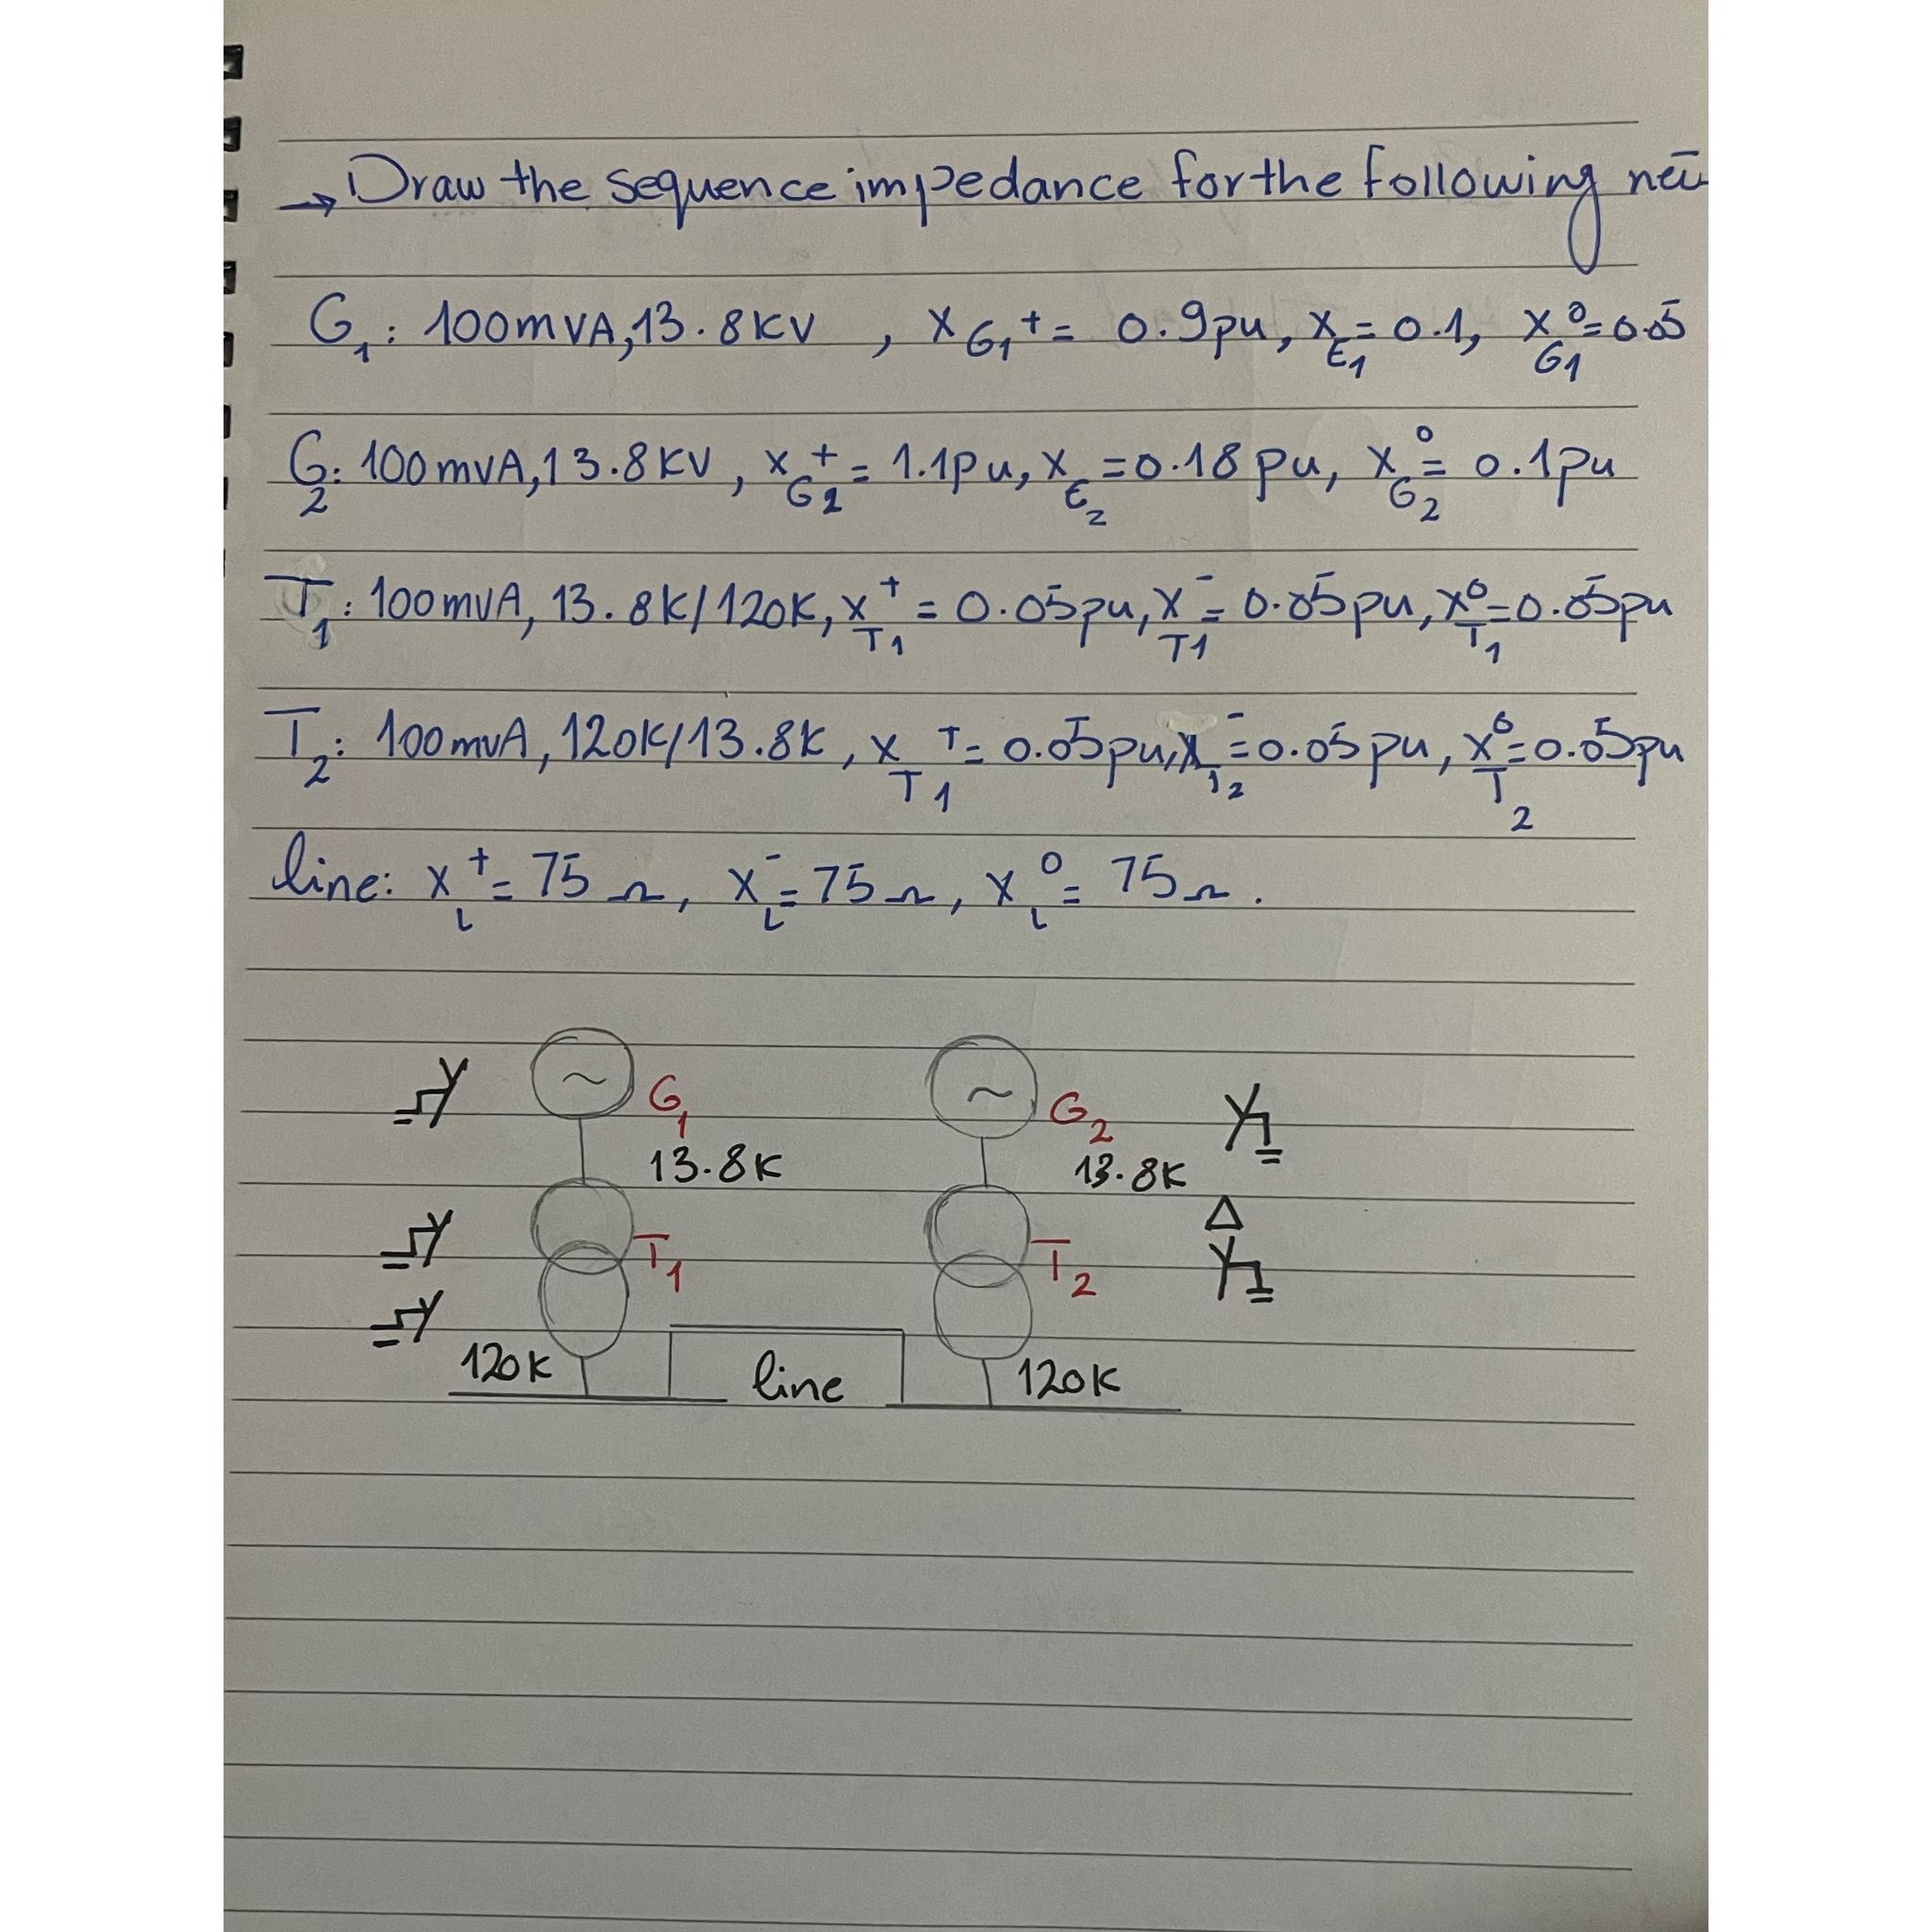 → Draw the sequence impedance for the following
G₁: 100mVA, 13.8KV, X G₁⁺ = 0.9pu, X ϵ₁ = 0.1, X G1⁰ = 0.05
G₂: 100mVA, 13.8KV, X G2⁺ = 1.1pu, X ϵ₂ = 0.18pu, X G2⁰ = 0.1pu
T₁: 100mVA, 13.8K/120K, X T1⁺ = 0.05pu, X T1⁻ = 0.05pu, X T1⁰ = 0.05pu
T₂: 100mVA, 120K/13.8K, X T1⁺ = 0.05pu, X T2⁻ = 0.05pu, X T2⁰ = 0.05pu
line: X L⁺ = 75Ω, X L⁻ = 75Ω, X L⁰ = 75Ω.
Y ~ G₁ ~ G₂ Y
13.8K 13.8K
Y T₁ T₂ Δ
Y Y
120K line 120K